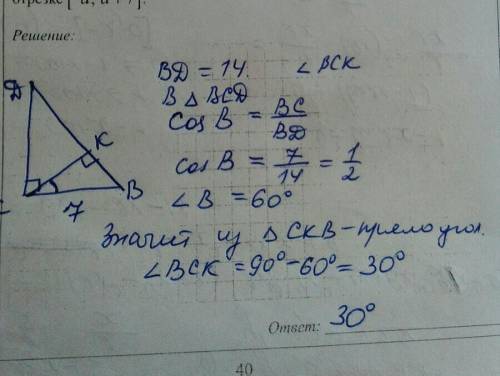 отрезке [a; a+7].
Решение:
BD = 14. ∠BCK
В △ BCD
cos B = BC/BD
cos B = 7/14 = 1/2
∠B = 60°
Значит из △CKB – прямоугол.
∠BCK = 90° – 60° = 30°
Д
K
B
7
Ответ: 30°
40